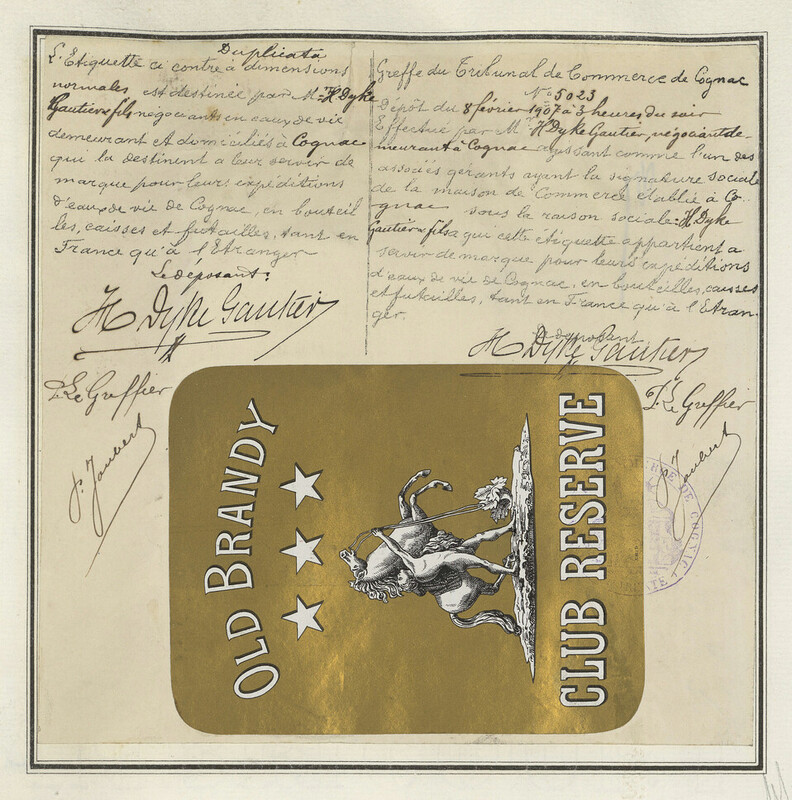 Duplicata
L'Etiquette ci contre à dimensions
normales est destinée par Mr H Dyke
Gautier & fils négociants en eaux de vie
demeurant et domiciliés à Cognac
qui la destinent a leur servir de
marque pour leurs expéditions
d'eaux de vie de Cognac, en bouteil
les, caisses et futailles, tant en
France qu'à l'Etranger
Le déposant:
H Dyke Gautier
P. Le Greffier
P. Joubert
Greffe du Tribunal de Commerce de Cognac
No 5023
Dépôt du 8 février 1907 à 3 heures du soir
Effectué par Mr H Dyke Gautier, négociant de-
meurant à Cognac agissant comme l'un des
associés gérants ayant la signature sociale
de la maison de Commerce établie à Co-
gnac sous la raison sociale H Dyke
Gautier & fils a qui cette étiquette appartient a
servir de marque pour leurs expéditions
d'eaux de vie de Cognac, en bouteilles, caisses
et futailles, tant en France qu'à l'Etran-
ger.
Le déposant
H Dyke Gautier
P. Le Greffier
P. Joubert
OLD BRANDY
CLUB RESERVE
DE COGNAC